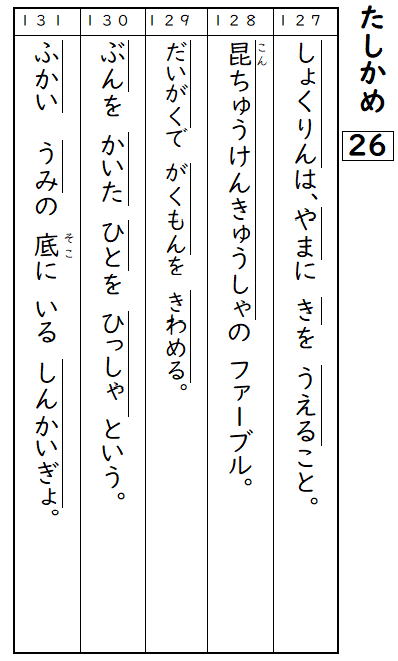 たしかめ
26
127
しょくりんは、やまに きを うえること。
128
昆ちゅうけんきゅうしゃの ファーブル。
こん
129
だいがくで がくもんを きわめる。
130
ぶんを かいた ひとを ひっしゃ という。
131
ふかい うみの 底に いる しんかいぎょ。
そこ